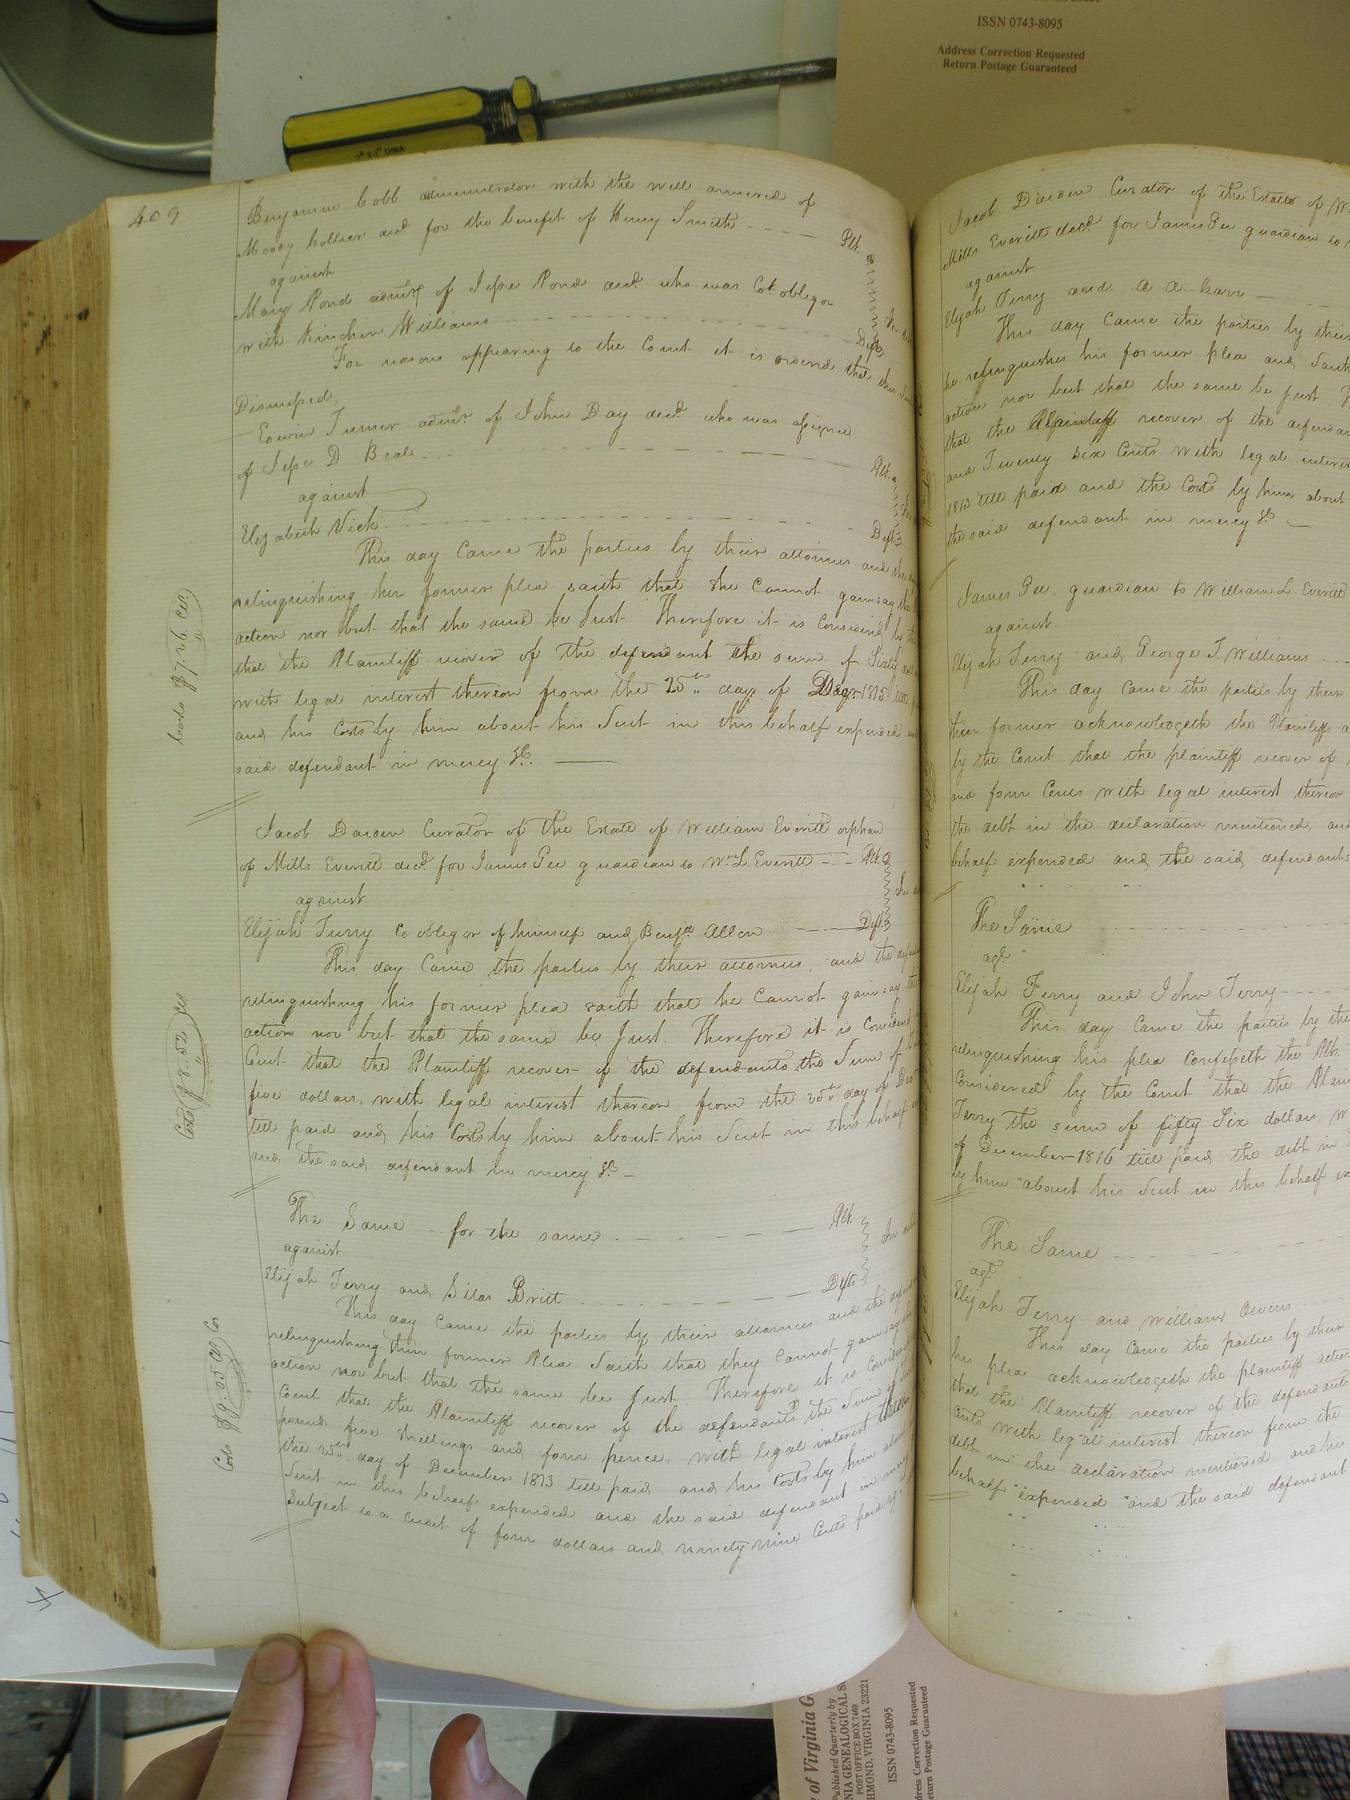 ISSN 0743-8095
Address Correction Requested
Return Postage Guaranteed
409
Benjamin Cobb administrator with the will annexed of
Moody Collier decd for the benefit of Henry Smith Plt.
against
Mary Pond admx of Jesse Pond decd who was Cot obligor
with Kinchen Williams Deft
For reasons appearing to the Court it is ordered that
Dismissed,
Edwin Turner admr. of John Day decd. who was assignee
of Jesse D Beale Plt.
against
Elizabeth Vick Deft
This day Came the parties by their attornies and the
relinquishing her former plea saith that she Cannot gainsay the
action nor but that the same be Just. Therefore it is Considered by
that the Plaintiff recover of the defendant the sum of Sixty
with legal interest thereon from the 25th day of 1815
and his Costs by him about his Suit in this behalf expended
said defendant in mercy &c.
Costs $7.26 Cts
Jacob Darden Curator of the Estate of William Everitt orphan
of Mills Everitt decd. for James Gee guardian to Wm. L. Everitt Plt.
against
Elijah Turry Co obligor of himself and Benjn Allen Deft
This day Came the parties by their attornies, and the
relinquishing his former plea saith that he Cannot gainsay the
action nor but that the same be Just. Therefore it is Considered
Court that the Plaintiff recover of the defendants the Sum of
five dollars, with legal interest thereon from the 25th day of
till paid and his Costs by him about his Suit in this behalf
and the said defendant in mercy &c
Costs $8.52
The Same for the same Plt.
against
Elijah Terry and Silas Britt Defts
This day Came the parties by their attornies and the
relinquishing their former Plea Saith that they Cannot gainsay
action nor but that the same be Just. Therefore it is Considered
Court that the Plaintiff recover of the defendants the Sum of
pounds five shillings and four pence, with legal interest
the 25th. day of December 1813 till paid and his Costs by him
Suit in this behalf expended and the said defendant in
Subject to a Credit of four dollars and ninety nine Cents paid
Costs $9.05
Jacob Darden Curator of the Estate of
Mills Everitt decd for James Gee guardian to
against
Elijah Terry and
This day Came the parties by their
he relinquishes his former plea and Saith
action nor but that the same be just.
that the Plaintiff recover of the
and Twenty six Cents with legal
1813 till paid and the Costs by him about
the said defendant in mercy &c
James Gee, guardian to William L. Everitt
against
Elijah Terry and George T. Williams
This day Came the parties by their
their former acknowledgeth the Plaintiffs
by the Court that the plaintiff recover of
and four Cents with legal interest thereon
the debt in the declaration mentioned, and
behalf expended and the said defendants
The Same
agt
Elijah Terry and John Terry
This day Came the parties by
relinquishing his plea Confesseth the Plt.
Considered by the Court that the
Terry the sum of fifty Six dollars
of December 1816 till paid, the debt in
by him about his Suit in this behalf
The Same
agt
Elijah Terry and William Owens
This day Came the parties by their
his plea acknowledgeth the plaintiff
that the Plaintiff recover of the defendants
Cents with legal interest thereon from the
debt in the declaration mentioned and his
behalf expended and the said defendant
of Virginia
Published Quarterly by
POST OFFICE BOX
VIRGINIA 23221
ISSN 0743-8095
Address Correction Requested
Return Postage Guaranteed